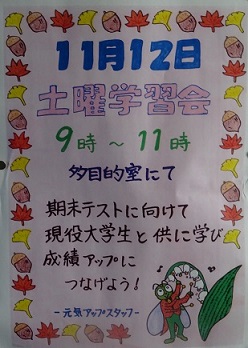 11月12日
土曜学習会
9時～11時
多目的室にて
期末テストに向けて
現役大学生と供に学び
成績アップに
つなげよう!
-元気アップスタッフ-